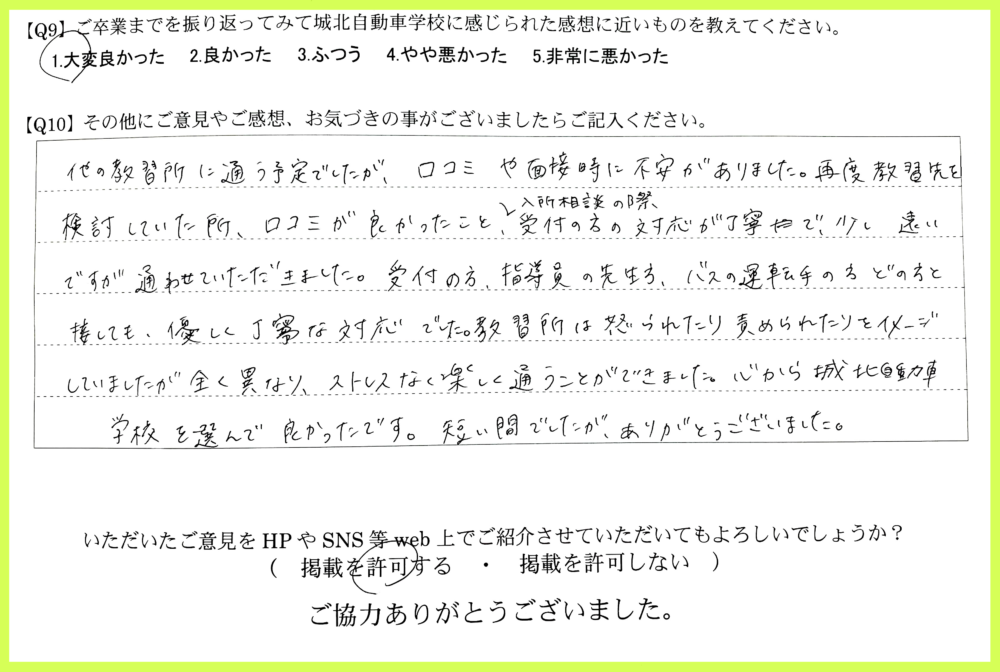 【Q9】ご卒業までを振り返ってみて城北自動車学校に感じられた感想に近いものを教えてください。
1.大変良かった 2.良かった 3.ふつう 4.やや悪かった 5.非常に悪かった
【Q10】その他にご意見やご感想、お気づきの事がございましたらご記入ください。
他の教習所に通う予定でしたが、口コミや面接時に不安がありました。再度教習先を
検討していた所、口コミが良かったこと、入所相談の際、受付の方の対応が丁寧で、少し遠い
ですが通わせていただきました。受付の方、指導員の先生方、バスの運転手の方どの方と
接しても、優しく丁寧な対応でした。教習所は怒られたり責められたりをイメージ
していましたが全く異なり、ストレスなく楽しく通うことができました。心から城北自動車
学校を選んで良かったです。短い間でしたが、ありがとうございました。
いただいたご意見をHPやSNS等web上でご紹介させていただいてもよろしいでしょうか？
（ 掲載を許可する ・ 掲載を許可しない ）
ご協力ありがとうございました。